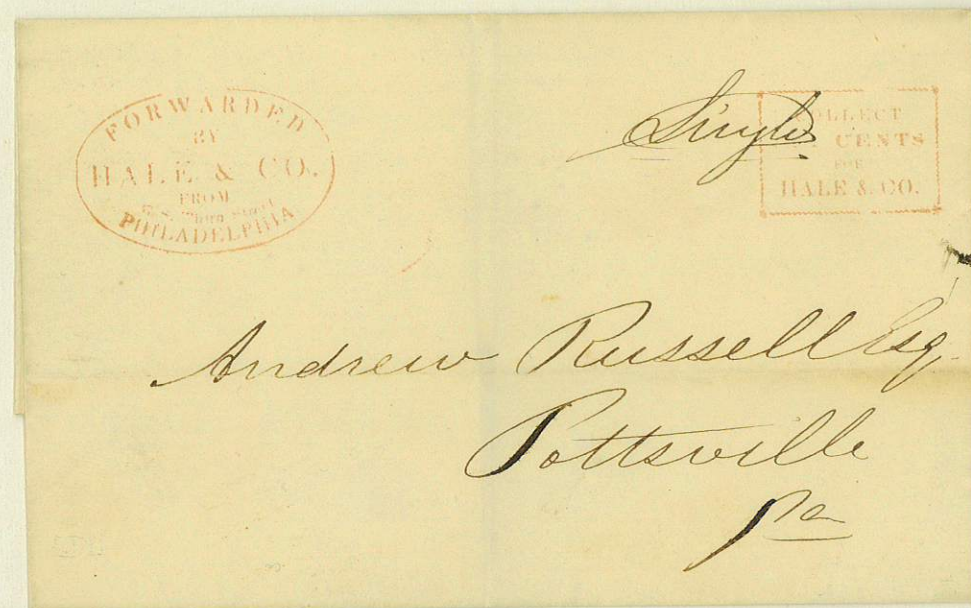 FORWARDED
BY
HALE & CO.
FROM
Third Street
PHILADELPHIA
Single
COLLECT
CENTS
FOR
HALE & CO.
Andrew Russell Esq.
Pottsville
Pa